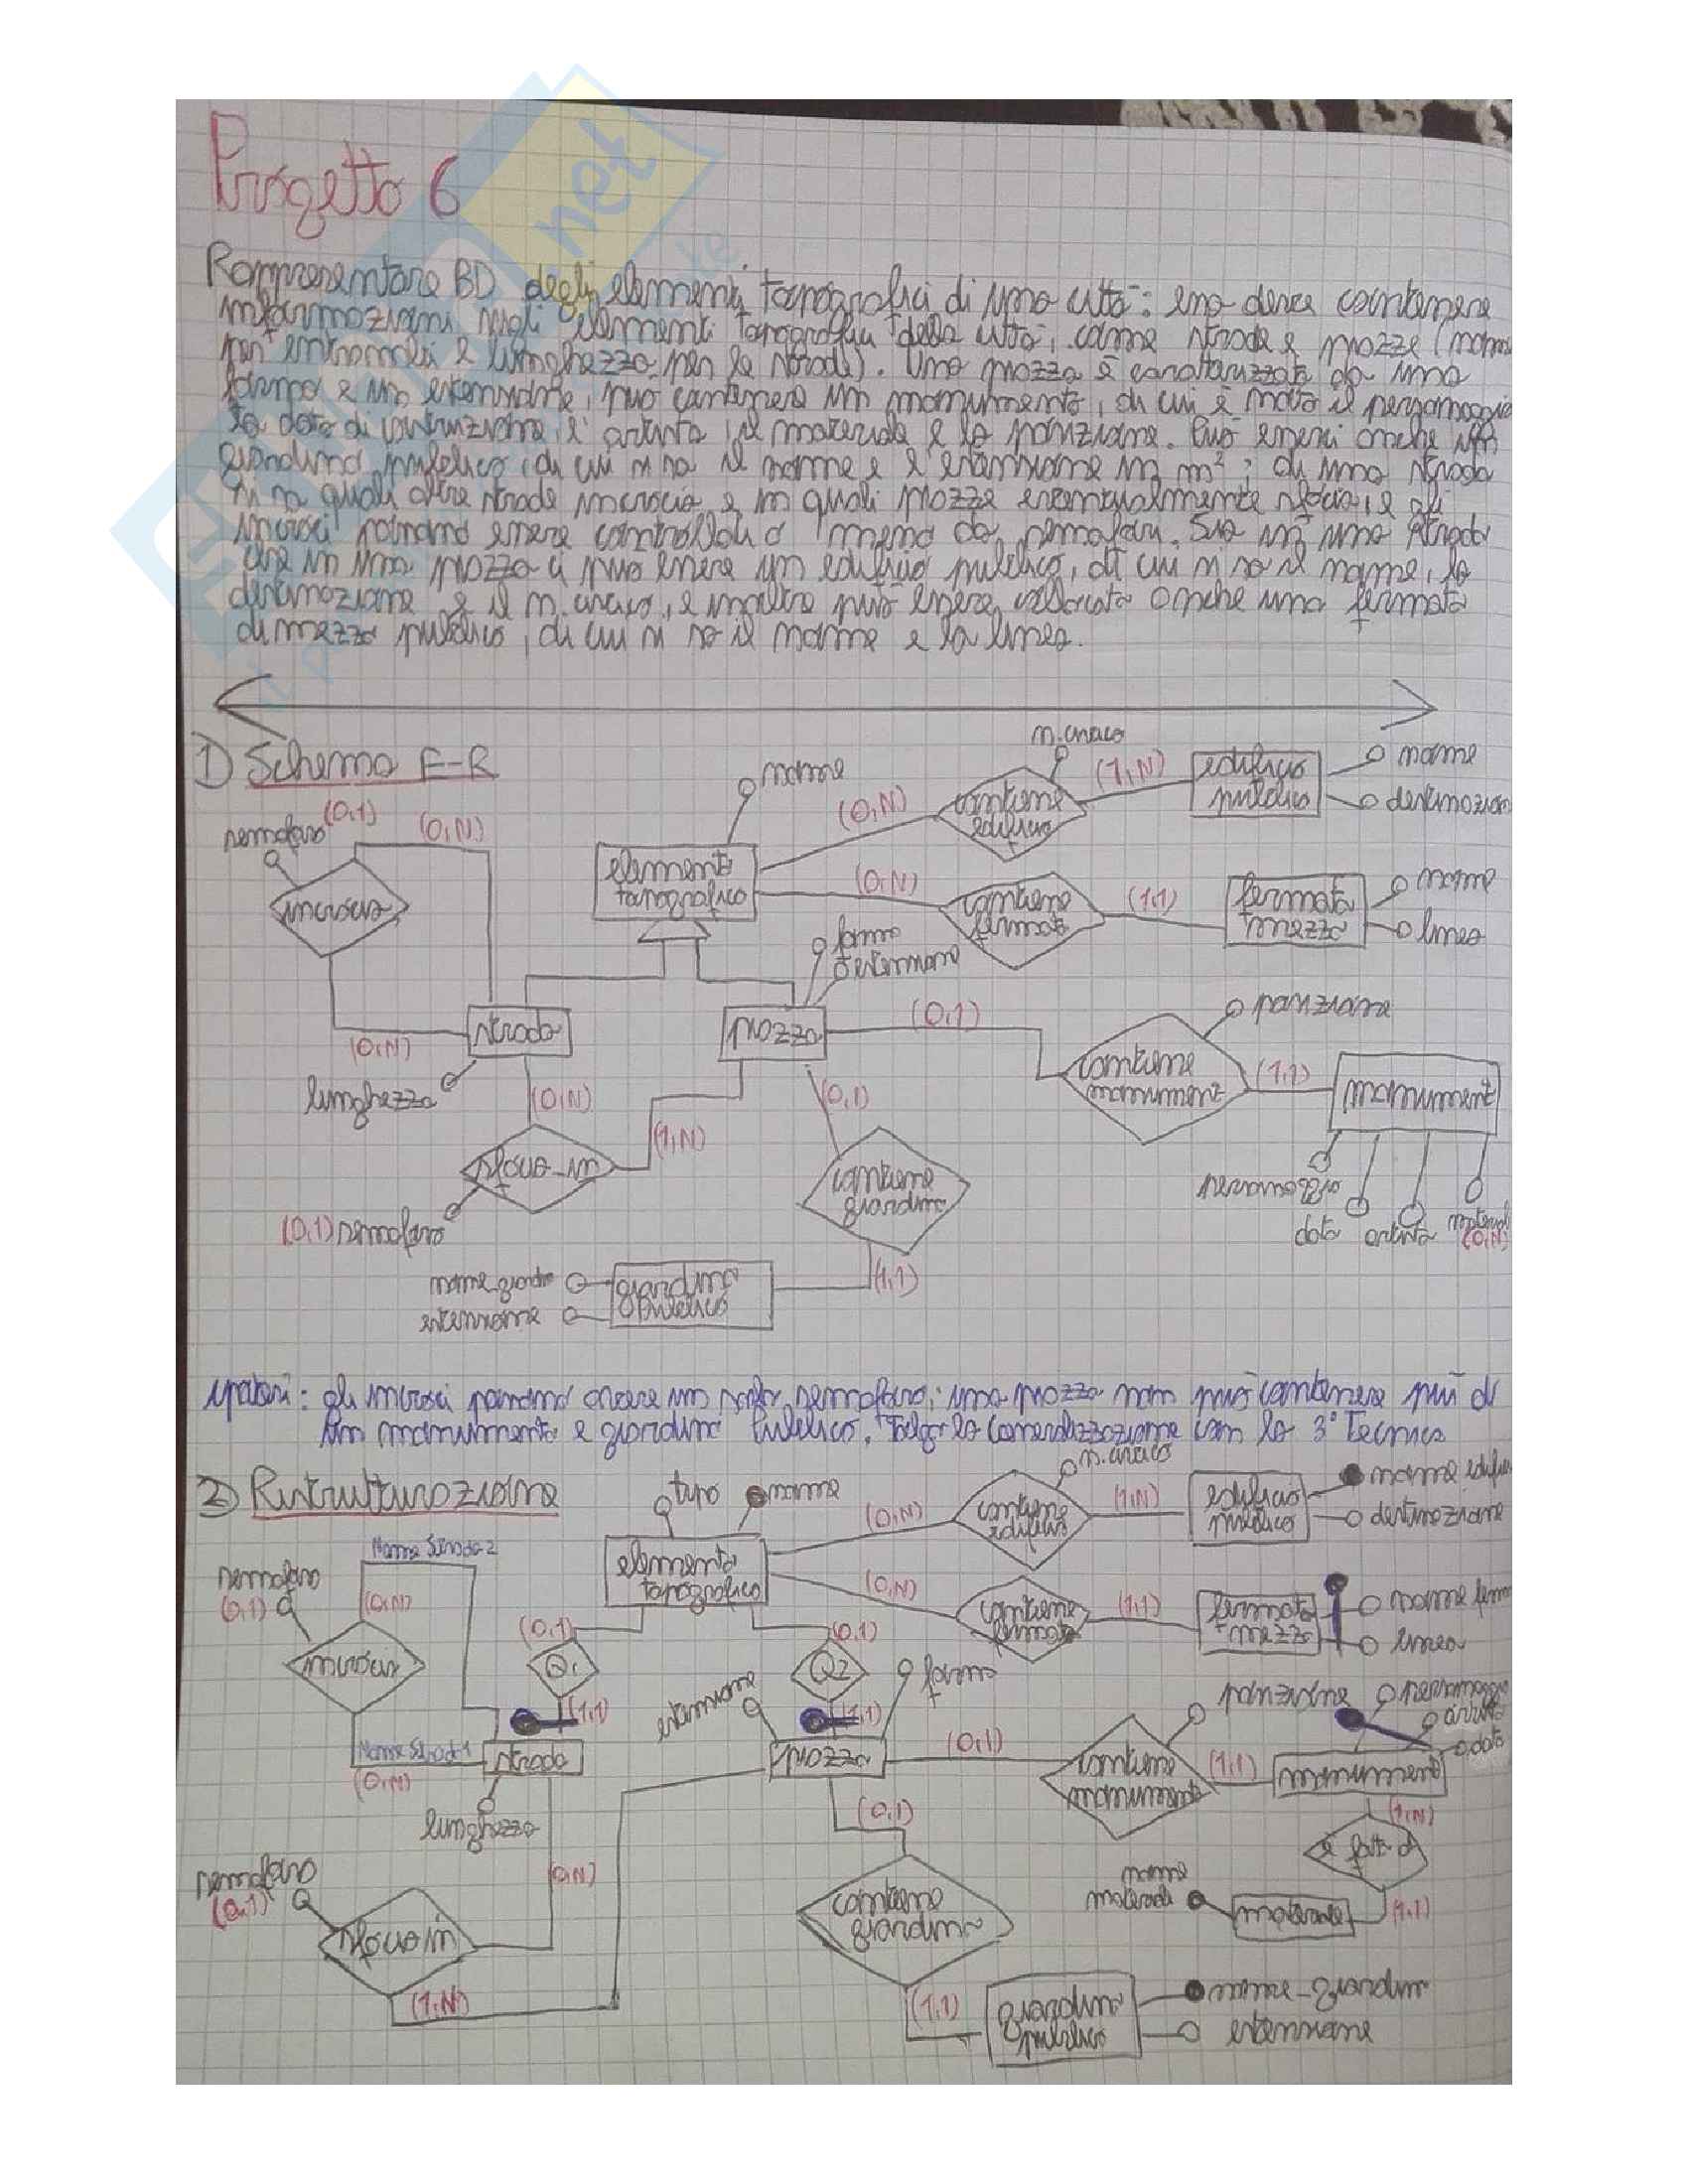 Progetto 6
Rappresentare BD degli elementi topografici di una città: essa deve contenere
informazioni sugli elementi topografici della città, come strade e piazze (nome
per entrambi e lunghezza per le strade). Una piazza è caratterizzata da una
forma e un estensione, può contenere un monumento, di cui è noto il personaggio
la data di costruzione, l'artista, il materiale e la posizione. Può esserci anche un
giardino pubblico, di cui si sa il nome e l'estensione in m²; di una strada
si sa quali altre strade incrocia e in quali piazze eventualmente sfocia, e gli
incroci possono essere controllati o meno da semafori. Sia in una strada
che in una piazza ci può essere un edificio pubblico, di cui si sa il nome, la
destinazione e il n. civico, e inoltre può essere collocata anche una fermata
di mezzo pubblico, di cui si sa il nome e la linea.
1) Schema E-R
semaforo (0,1)
(0,N)
incrocia
nome
elemento
topografico
(0,N)
contiene
edificio
n.civico
(1,N)
edificio
pubblico
nome
(0,N)
contiene
fermata
(1,1)
fermata
mezzo
nome
linea
forma
estensione
strada
(0,N)
lunghezza
piazza
(0,1)
contiene
monument
posizione
(1,1)
monument
personaggio
data
artista
(0,N)
(0,N)
sfocia-in
(1,N)
(0,1) semaforo
(0,1)
contiene
giardino
(1,1)
giardino
pubblico
estensione
ipotesi: gli incroci possono avere un solo semaforo; una piazza non può contenere più di
un monumento e giardino Pubblico. Tolgo la Generalizzazione con la 3° Tecnica
2) Ristrutturazione
Nome Strada 2
semaforo
(0,1)
(0,N)
incrocia
Nome Strada 1
(0,N)
tipo
nome
elemento
topografico
(0,N)
contiene
edificio
n.civico
(1,N)
edificio
pubblico
destinazione
(0,N)
contiene
fermata
(1,1)
fermata
mezzo
linea
(0,1)
Q1
(1,1)
strada
lunghezza
(0,1)
Q2
(1,1)
piazza
estensione
forma
(0,1)
contiene
monumento
posizione
(1,1)
monument
personaggio
data
(1,N)
è fatto di
(1,1)
materiale
nome
semaforo
(0,1)
sfocia in
(0,N)
(1,N)
(0,1)
contiene
giardino
(1,1)
giardino
pubblico
nome-giardino
estensione